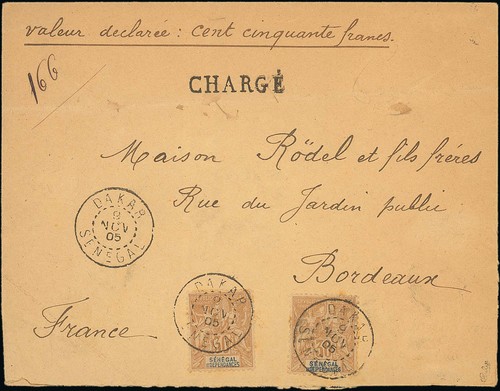 valeur declarée : cent cinquante francs.
166
CHARGÉ
Maison Rödel et fils frères
Rue du Jardin public
Bordeaux
France
DAKAR
9
NOV
05
SÉNÉGAL
DAKAR
9
NOV
05
SÉNÉGAL
DAKAR
9
NOV
05
SÉNÉGAL
ET DÉPENDANCES
SÉNÉGAL
ET DÉPENDANCES